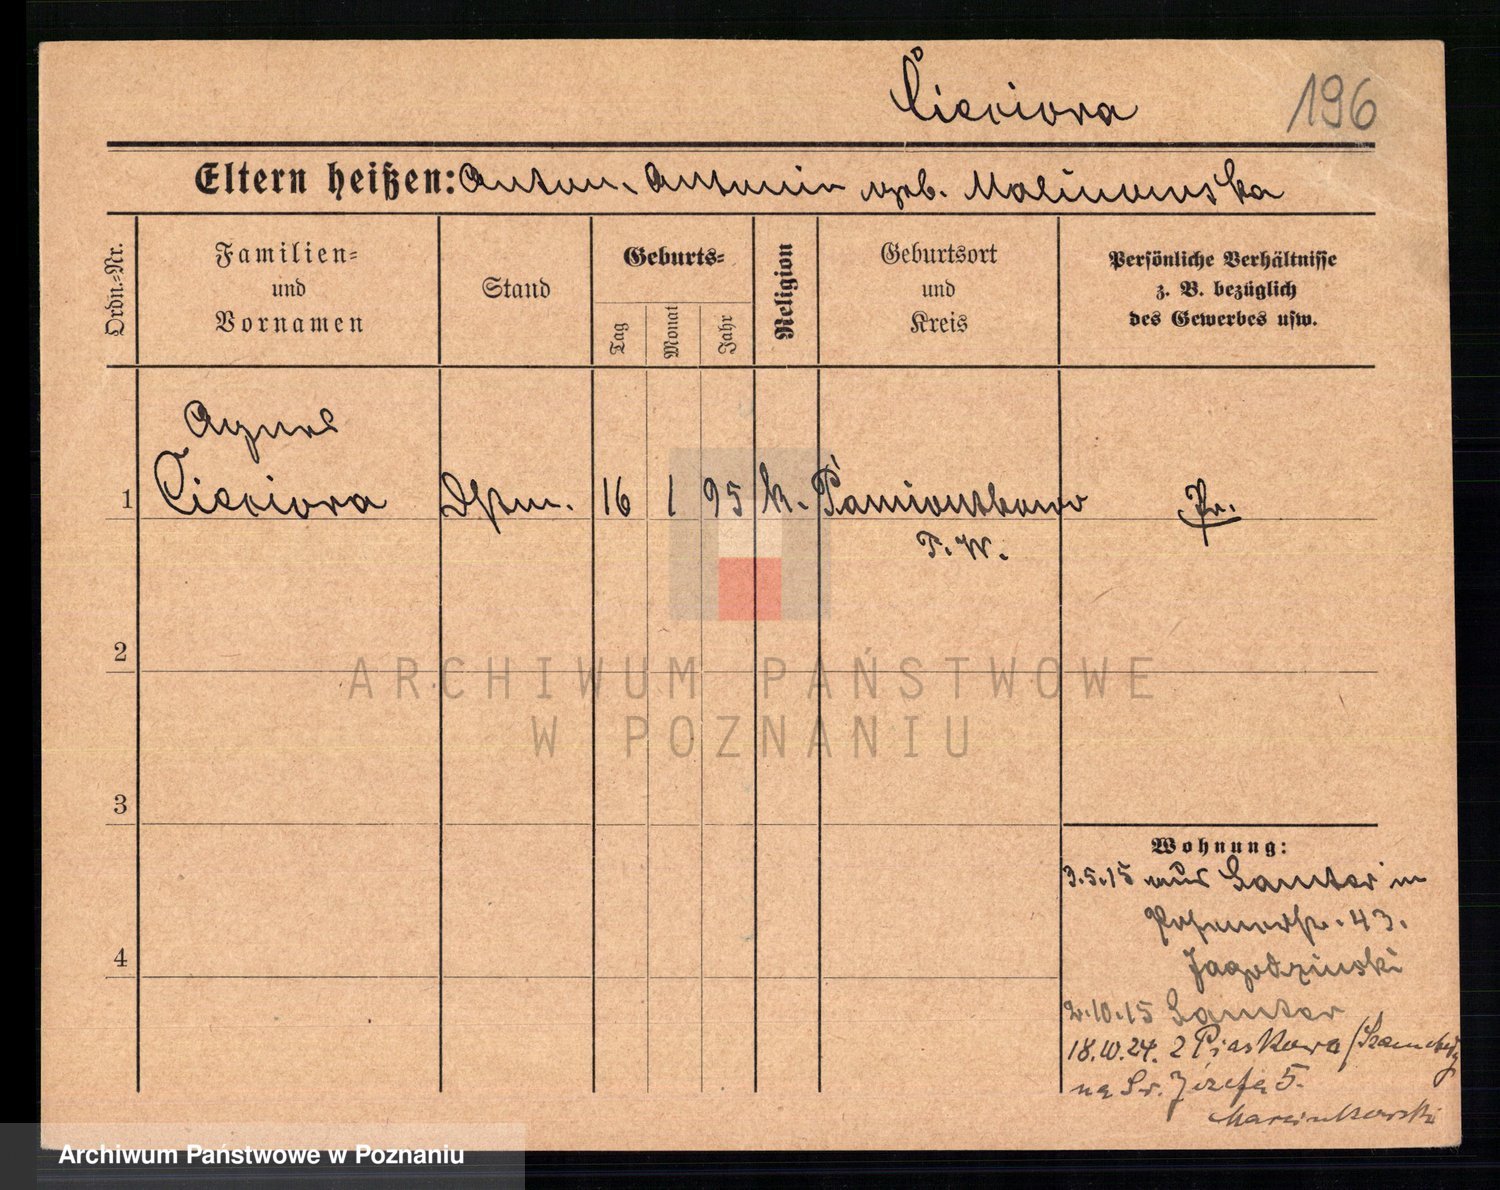 Cieciora
196
Eltern heißen: Anton. Antonin geb. Malinowska
Ordn.=Nr.
Familien=
und
Vornamen
Stand
Geburts=
Tag
Monat
Jahr
Religion
Geburtsort
und
Kreis
Persönliche Verhältnisse
z. B. bezüglich
des Gewerbes usw.
Agnes
1 Cieciora 16 1 95 k. Pamiontkowo Pr.
2
3
4
Wohnung:
3.5.15 aus Samter in
Posenerstr. 43.
Jagodzinski
2.10.15 Samter
18.10.24. z Piaskowa /Szamotuły
na Św. Józefa 5.
Marcinkowski
ARCHIWUM PAŃSTWOWE
W POZNANIU
Archiwum Państwowe w Poznaniu